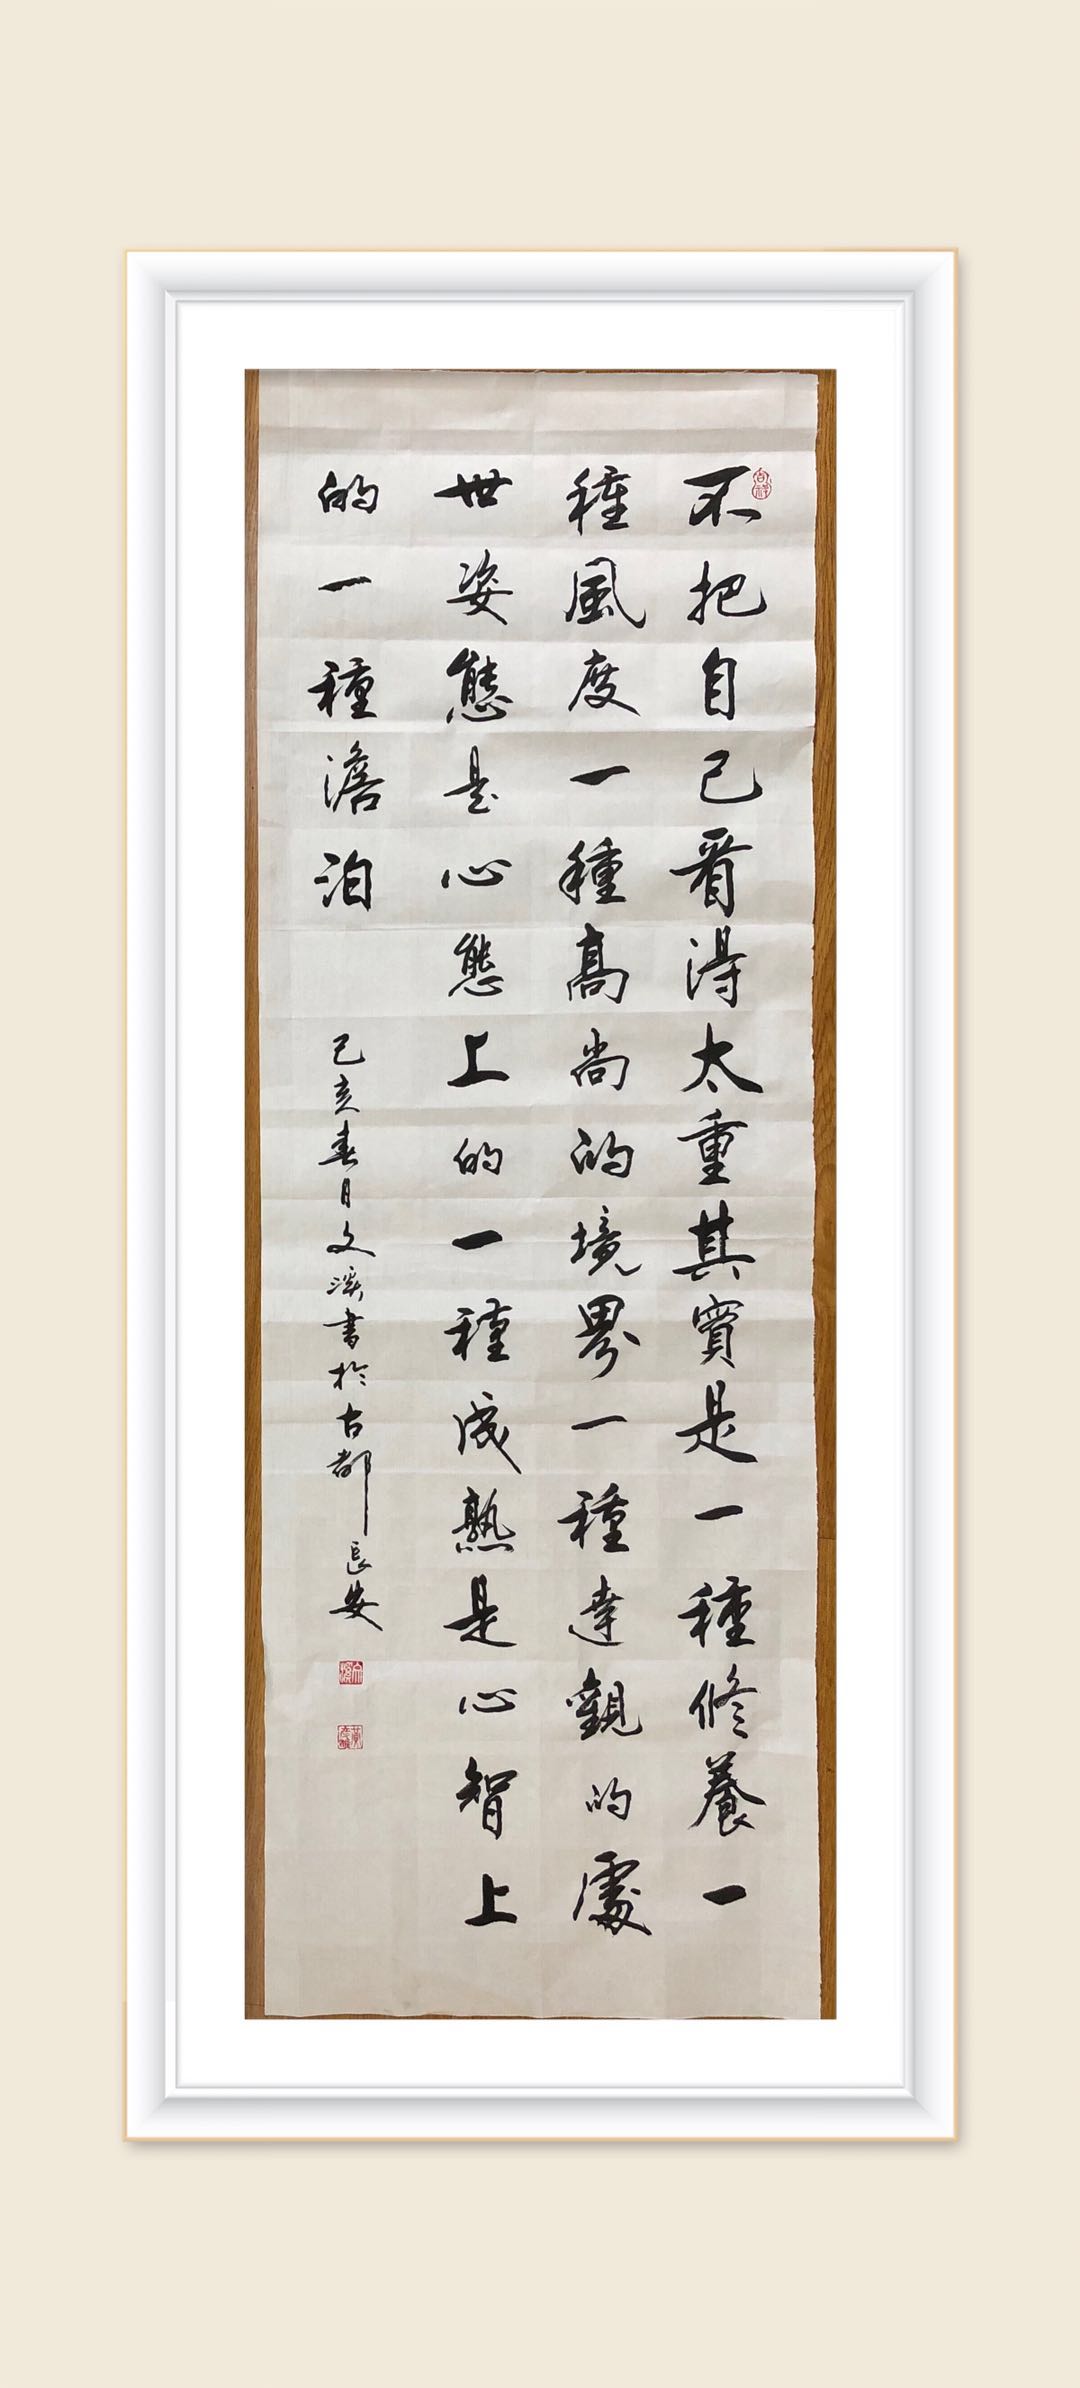 不把自己看得太重其實是一種修養一
種風度一種高尚的境界一種達觀的處
世姿態是心態上的一種成熟是心智上
的一種澹泊
己亥春日文溪書於古都長安
吉祥